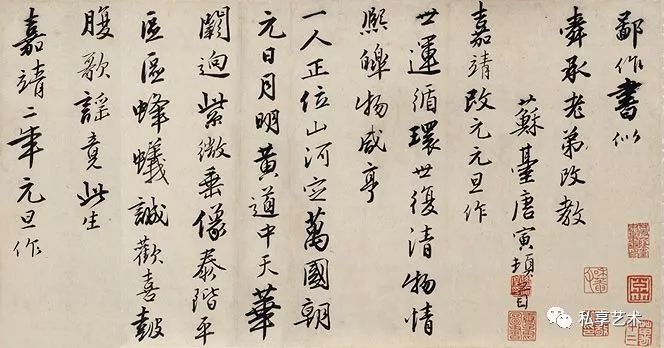 鄙作書似
舜承老弟改教
蘇臺唐寅頓首
嘉靖改元元旦作
世運循環世復清物情
熙皞物咸亨
一人正位山河定萬國朝
元日月明黃道中天華
闕迥紫微垂像泰階平
區區蜂蟻誠歡喜鼓
腹歌謠竟此生
嘉靖二年元旦作
私享艺术